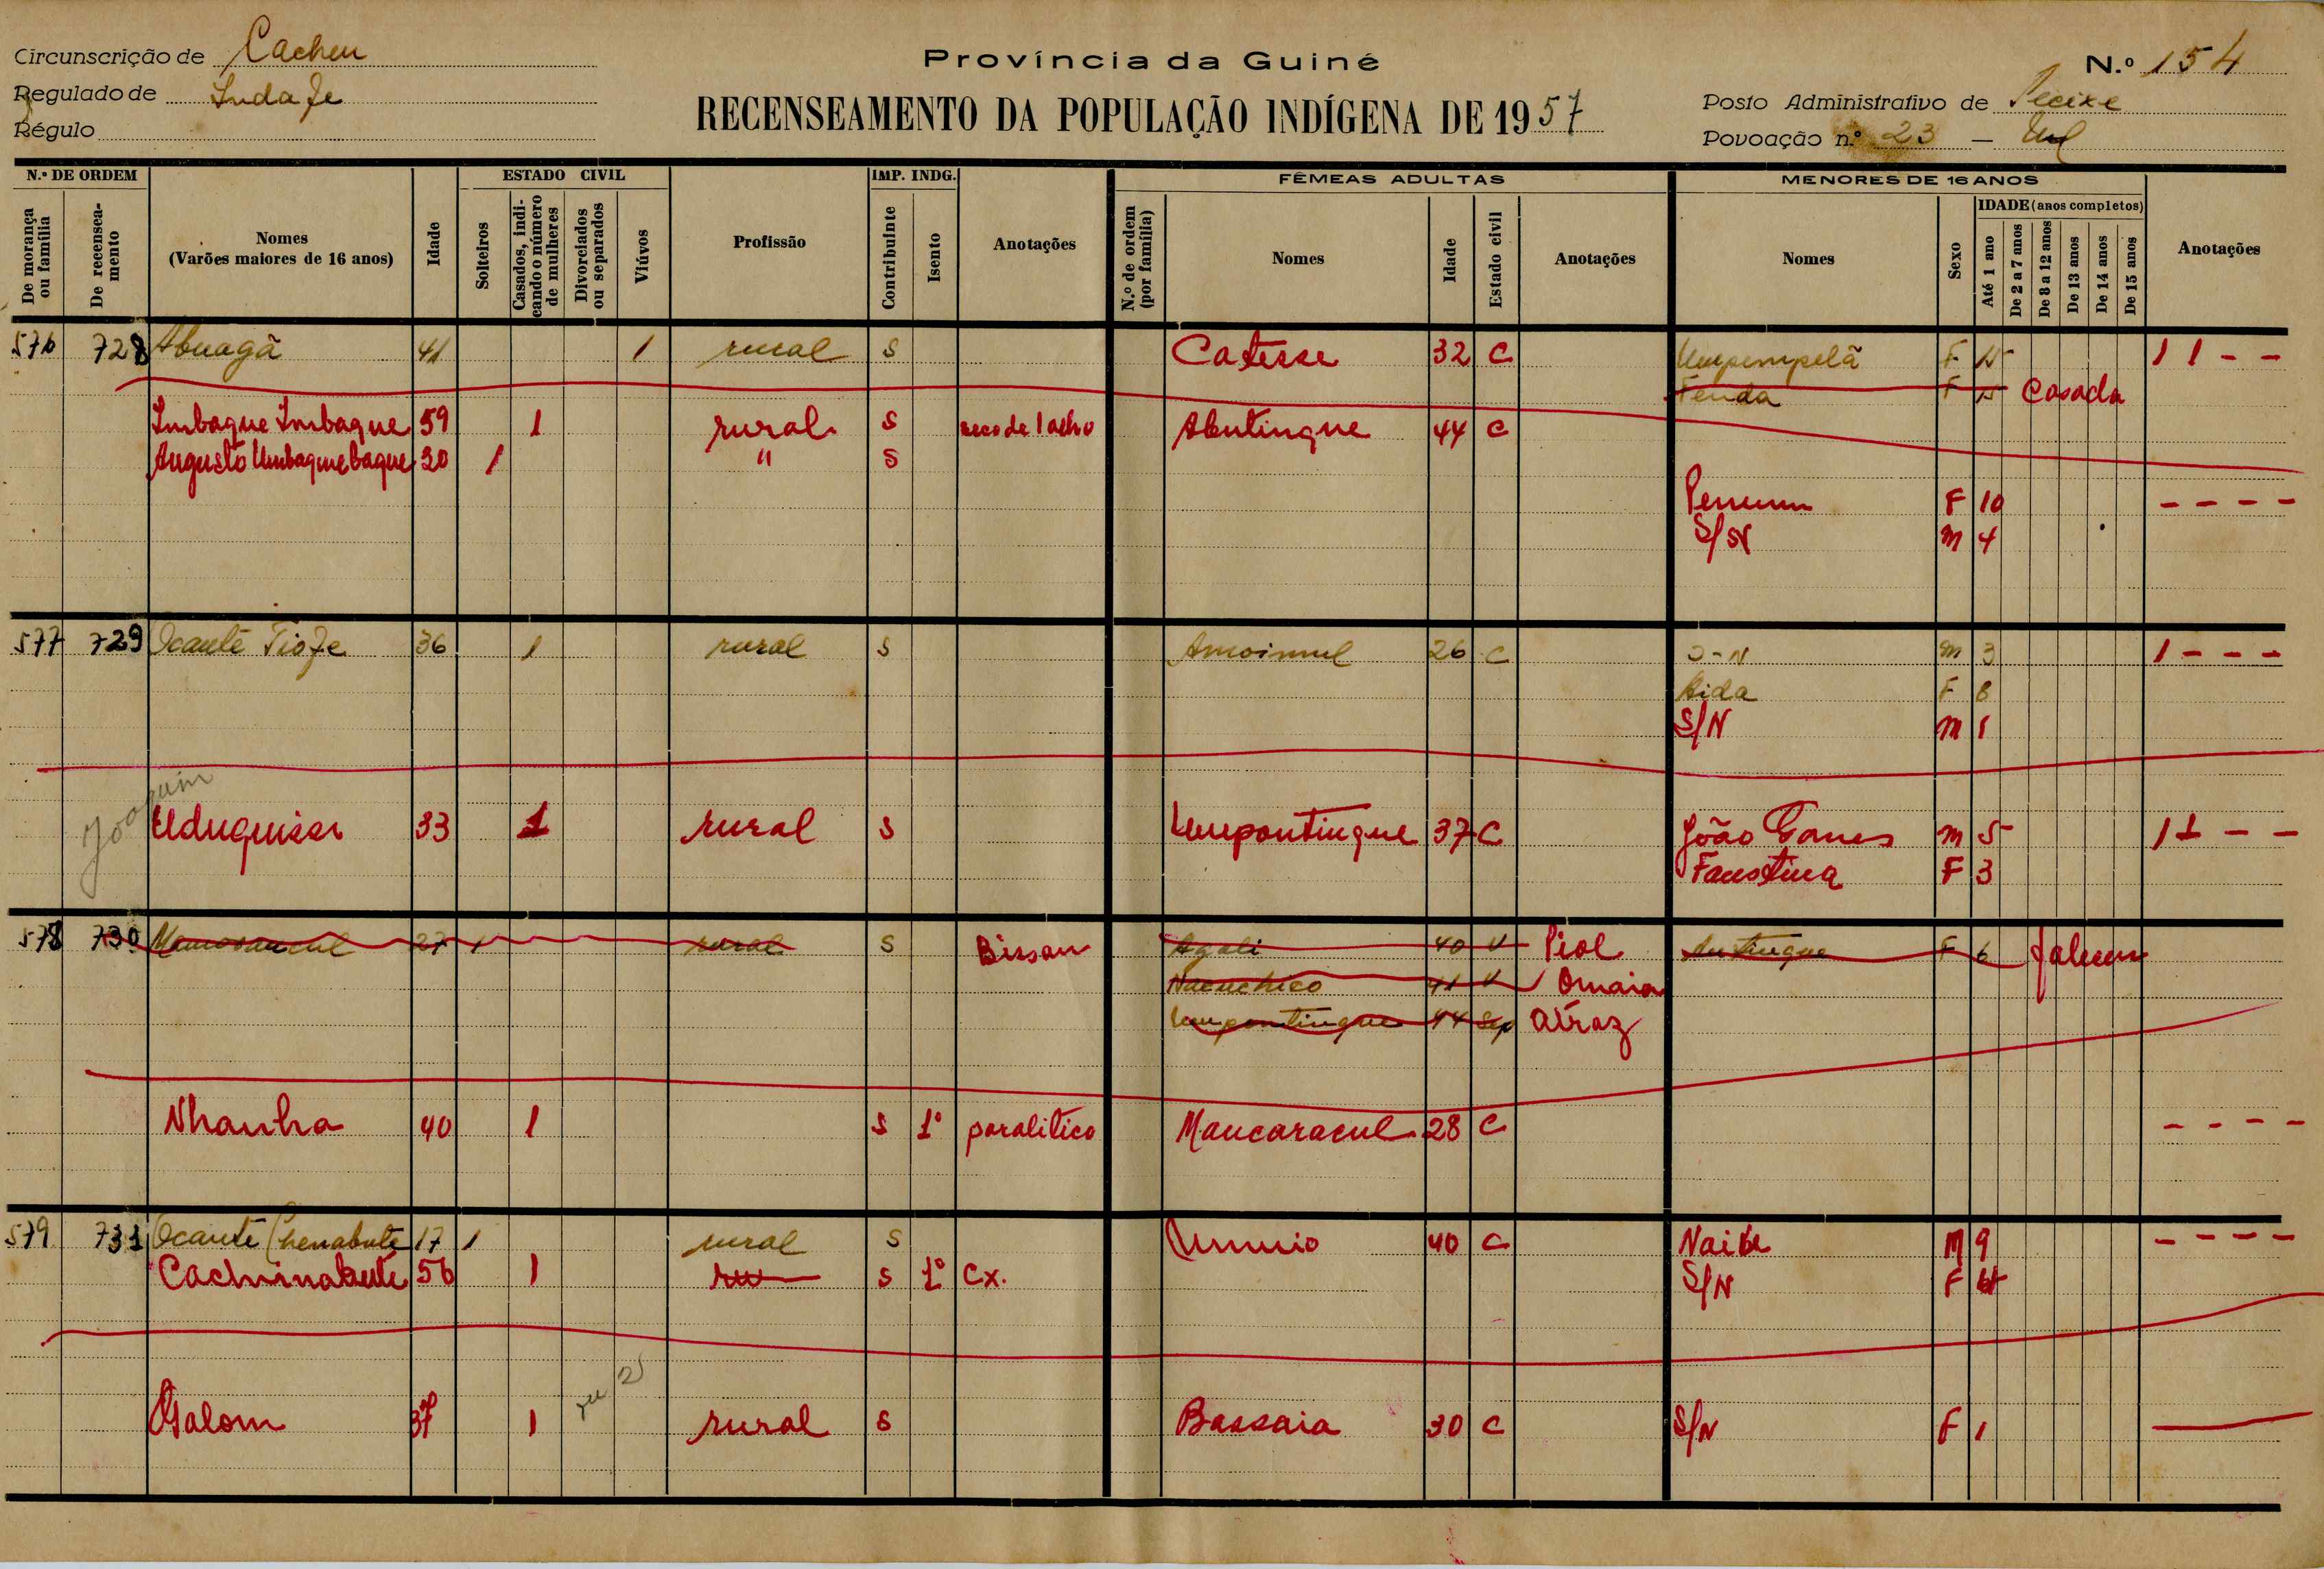 Circunscrição de Cacheu
Província da Guiné
N.º 154
Regulado de
RECENSEAMENTO DA POPULAÇÃO INDÍGENA DE 1957
Posto Administrativo de Pecixe
Régulo
Povoação n.º 23 —
N.º DE ORDEM
ESTADO CIVIL
IMP. INDG.
FÊMEAS ADULTAS
MENORES DE 16 ANOS
De morança ou família
De recenseamento
Nomes (Varões maiores de 16 anos)
Idade
Solteiros
Casados, indicando o número de mulheres
Divorciados ou separados
Viúvos
Profissão
Contribuinte
Isento
Anotações
N.º de ordem (por família)
Nomes
Idade
Estado civil
Anotações
Nomes
Sexo
IDADE (anos completos)
Até 1 ano
De 2 a 7 anos
De 8 a 12 anos
De 13 anos
De 14 anos
De 15 anos
Anotações
576 728 Abuagã 41 1 rural S Catesse 32 C Umpempelã F 15 1 1 - -
Fenda F 15 Casada
Imbaque Imbaque 59 1 rural S Abutingue 44 C
Augusto Umbaquebaque 20 1 " S
F 10 - - - -
S/N M 4
577 729 Ocante Tioje 36 1 rural S Amoimul 26 C S-N M 3 1 - - -
Aida F 8
S/N M 1
Joaquim
Uduquissi 33 1 rural S Umpontingue 37 C João Gomes M 5 1 1 - -
Faustina F 3
578 730 Mamosancul 27 1 rural S Bissau Agali 40 V Piol Antingue F 6 faleceu
Nacuchico 41 V Omaia
Umpontingue 44 Sep Atraz
Nhanha 40 1 S 1º paralitico Mancaracul 28 C - - - -
579 731 Ocante Chenabute 17 1 rural S Umuio 40 C Naibe M 9 - - - -
Cachinabute 56 1 S 1º Cx. S/N F 4
2
Galom 37 1 rural S Bassaia 30 C S/N F 1